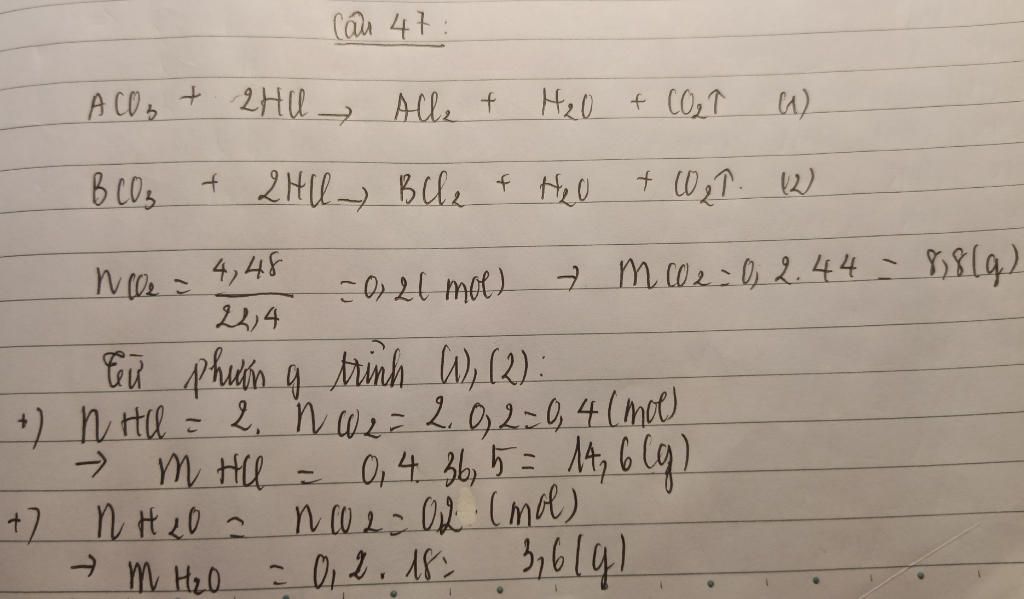 Câu 47:
ACO3 + 2HCl → ACl2 + H2O + CO2↑ (1)
BCO3 + 2HCl → BCl2 + H2O + CO2↑. (2)
nCO2 = 4,48/22,4 = 0,2( mol) → mCO2 = 0,2.44 = 8,8(g)
Từ phương trình (1), (2):
+) nHCl = 2. nCO2 = 2.0,2 = 0,4 (mol)
→ mHCl = 0,4.36,5 = 14,6(g)
+) nH2O = nCO2 = 0,2 (mol)
→ mH2O = 0,2.18 = 3,6(g)